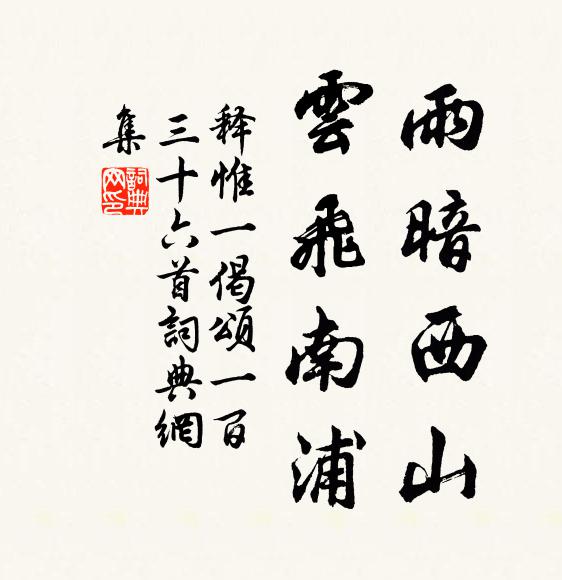 雨暗西山
雲飛南浦
释惟一偈頌一百
三十六首詞典網
集
詞典
网印